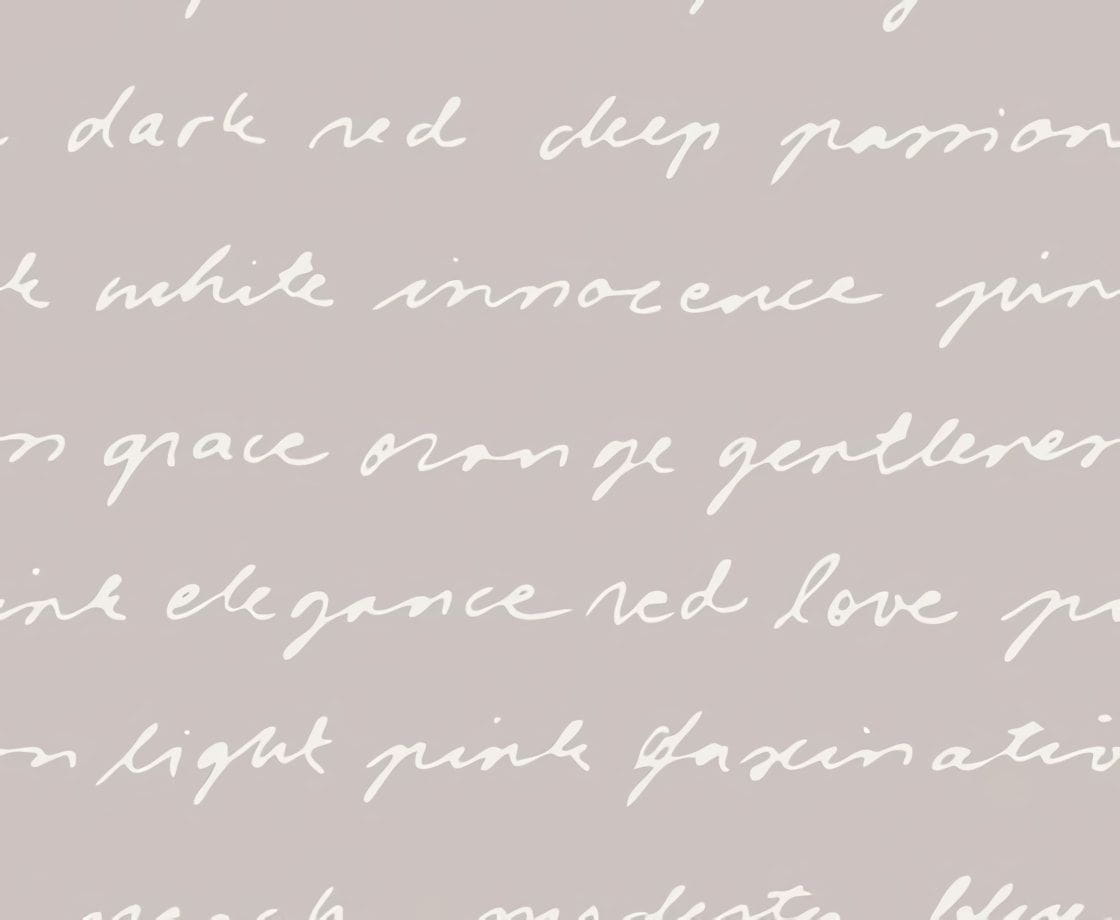 dark red deep passion
white innocence
grace orange gentlenes
ink elegance red love
light pink fascinatio
peach modesty